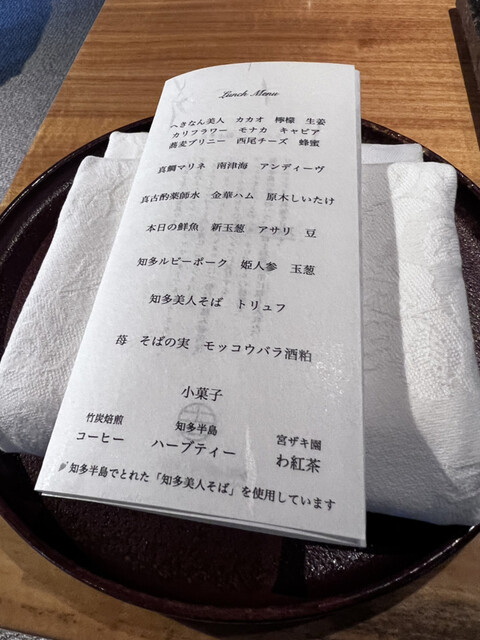 Lunch Menu
へきなん美人 カカオ 檸檬 生姜
カリフラワー モナカ キャビア
蕎麦ブリニー 西尾チーズ 蜂蜜
真鯛マリネ 南津海 アンディーヴ
真古酌薬師水 金華ハム 原木しいたけ
本日の鮮魚 新玉葱 アサリ 豆
知多ルビーポーク 姫人参 玉葱
知多美人そば トリュフ
苺 そばの実 モッコウバラ酒粕
小菓子
竹炭焙煎
コーヒー
知多半島
ハーブティー
宮ザキ園
わ紅茶
知多半島でとれた「知多美人そば」を使用しています